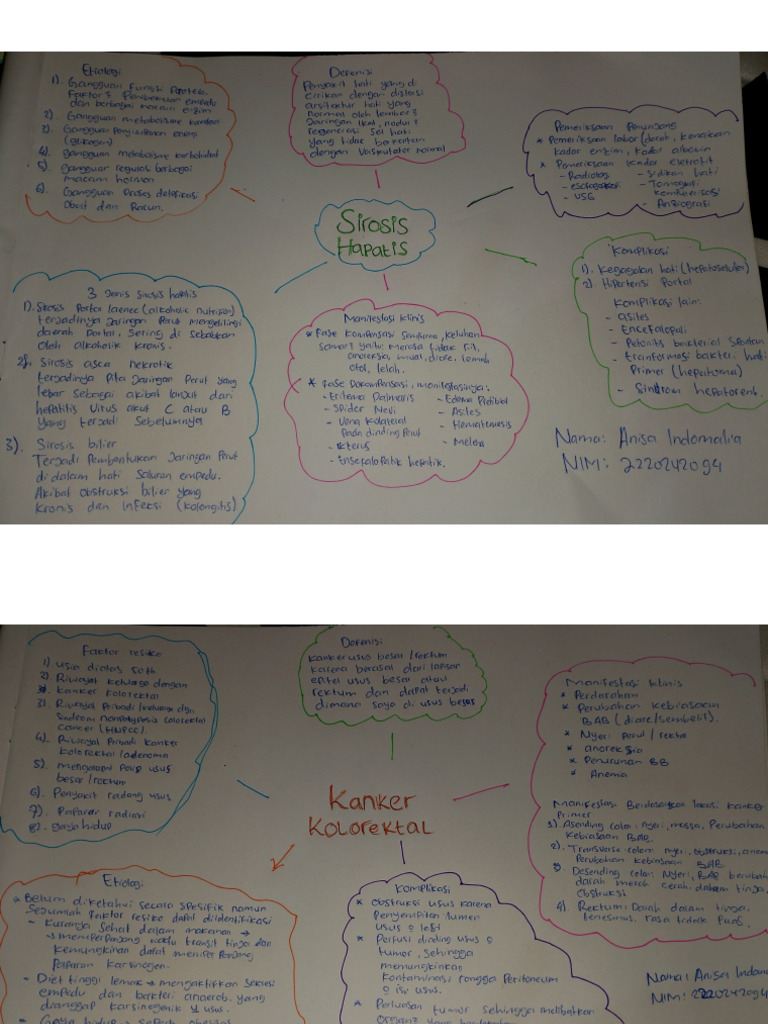 Etiologi
1). Gangguan Fungsi
dan berbagai macam enzim
2). Gangguan metabolisme
3). Gangguan energi
(glukogen)
4). Gangguan metabolisme karbohidrat
5). Gangguan regulasi berbagai
macam hormon
6). Gangguan Proses detofikasi
Obat dan Racun.
Defenisi
Penyakit hati yang di
cirikan dengan distorsi
arsitektur hati yang
normal oleh lembar2
Jaringan Ikat, nodul2
regenerasi Sel hati
yang tidak berkaitan
dengan Vaskulator normal
Pemeriksaan Penunjang
* Pemeriksaan labor (darah, kenaikan
kadar enzim, kadar albumin
* Pemeriksaan kadar eletrolit
- Radiologi - Sidikan hati
- esofagoskopi - Tomografi
- USG komputerisasi
- Angiografi
Sirosis
Hapatis
Komplikasi
1). Kegagalan hati (hepatoseluler)
2). Hipertensi Portal
Komplikasi lain:
- asites
- Encefalopati
- Peritonitis bakterial Spontan
- transformasi bakteri hati
Primer (hepatoma)
- Sindrom hepatorenk.
3 Jenis Sirosis hepatis
1). Sirosis Porta laenec (alkoholic nutrision)
terjadinya Jaringan Parut mengelilingi
daerah Portal. Sering di sebabkan
oleh alkoholik kronis.
2). Sirosis asca nekrotik
terjadinya Pita Jaringan Parut yang
lebar sebagai akibat lanjut dari
hepatitis Virus akut C atau B
yang terjadi Sebelumnya
3). Sirosis bilier
Terjadi Pembentukan Jaringan Parut
di dalam hati Saluran empedu.
Akibat obstruksi bilier yang
kronis dan infeksi (kolongitis)
Manifestasi klinis
* Fase kompensasi Sempurna, keluhan
samar2 yaitu merasa tidak fit,
anoreksia, mual, diare, lemah
otot, lelah.
* fase Dekompensasi, manifestasinya:
- Eritema Palmaris - Edema Pretibial
- Spider Nevi - Asites
- Vena Kolateral - Hematemesis
Pada dinding Perut - Melena
- Ikterus
- Ensefalopatik hepatik.
Nama: Anisa Indomalia
NIM: 2220242094
Faktor resiko
1) usia diatas 50 th.
2). Riwayat keluarga dengan
kanker kolorektal
3). Riwayat Pribadi/keluarga dgn
Sindrom nonpolyposis colorektal
cancer (HNPCC).
4). Riwayat Pribadi kanker
kolorektal/adenoma
5). mengonsumsi usus
besar/rectum
6). Penyakit radang usus
7). Paparan radiasi
8). gaya hidup
Defenisi
Kanker usus besar/rectum
karena berasal dari lapisan
epitel usus besar atau
rektum dan dapat terjadi
dimana saja di usus besar
Manifestasi klinis
* Perdarahan
* Perubahan kebiasaan
BAB (diare/sembelit).
* Nyeri perut / rektal
* anoreksia
* Penurunan BB
* Anemia
Manifestasi Berdasarkan lokasi kanker
Primer
1) Asending colon: Nyeri, massa, Perubahan
Kebiasaan BAB
2). Transverse colon: nyeri, obstruksi, anemi
Perubahan kebiasaan BAB
3). Desending colon: Nyeri, BAB berubah
darah merah cerah dalam tinja,
Obstruksi
4). Rectum: Darah dalam tinja,
tenesmus, rasa tidak Puas.
Kanker
Kolorektal
Etiologi
* Belum diketahui secara Spesifik namun
Sejumlah faktor resiko dapat diidentifikasi
- Kurang sehat dalam makanan →
→ memperpanjang waktu transit tinja dan
kemungkinan dapat memperpanjang
Paparan karsinogen.
- Diet tinggi lemak → mengaktifkan Sekresi
empedu dan bakteri anaerob. yang
dianggap karsinogenik usus.
- Gaya hidup → Seperti obesitas
Komplikasi
* obstruksi usus karena
Penyempitan lumen
usus lesi
* Perfusi dinding usus
tumor, sehingga
memungkinkan
Kontaminasi rongga Peritoneum
isi usus.
* Perluasan tumor sehingga melibatkan
Organ2 yang
Nama: Anisa Indoma
NIM: 2220242094